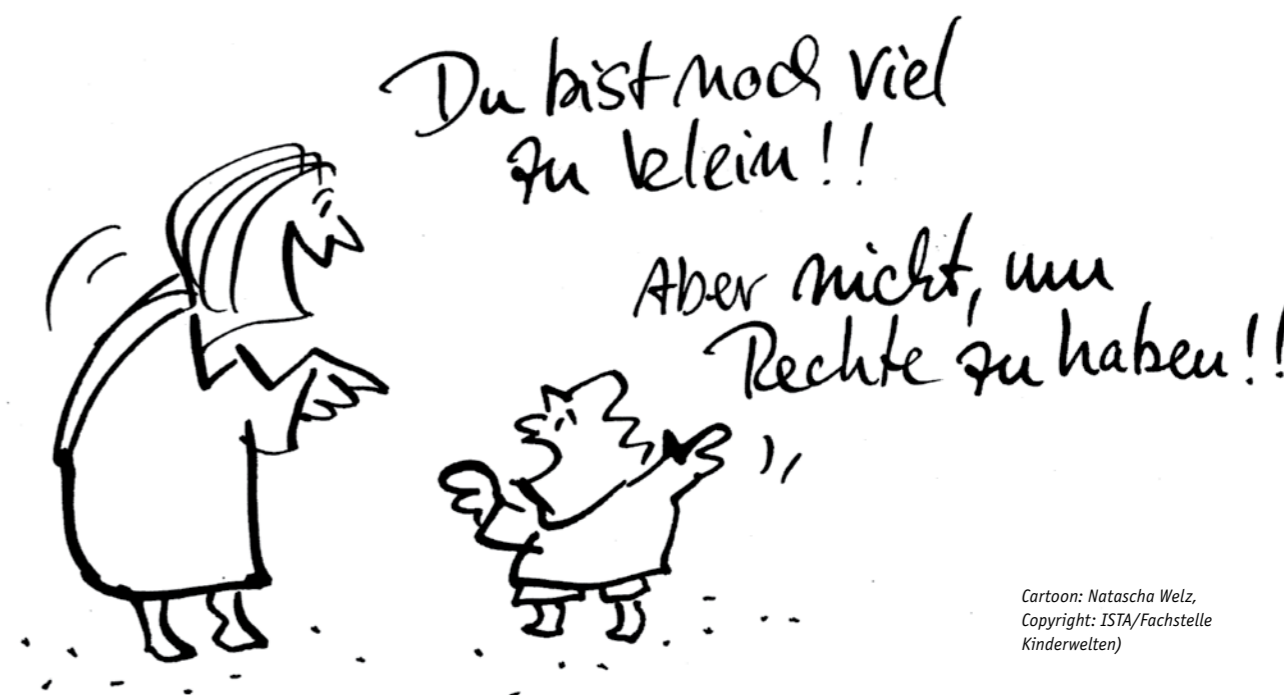 Du bist noch viel
zu klein!!
Aber nicht, um
Rechte zu haben!!
Cartoon: Natascha Welz,
Copyright: ISTA/Fachstelle
Kinderwelten)